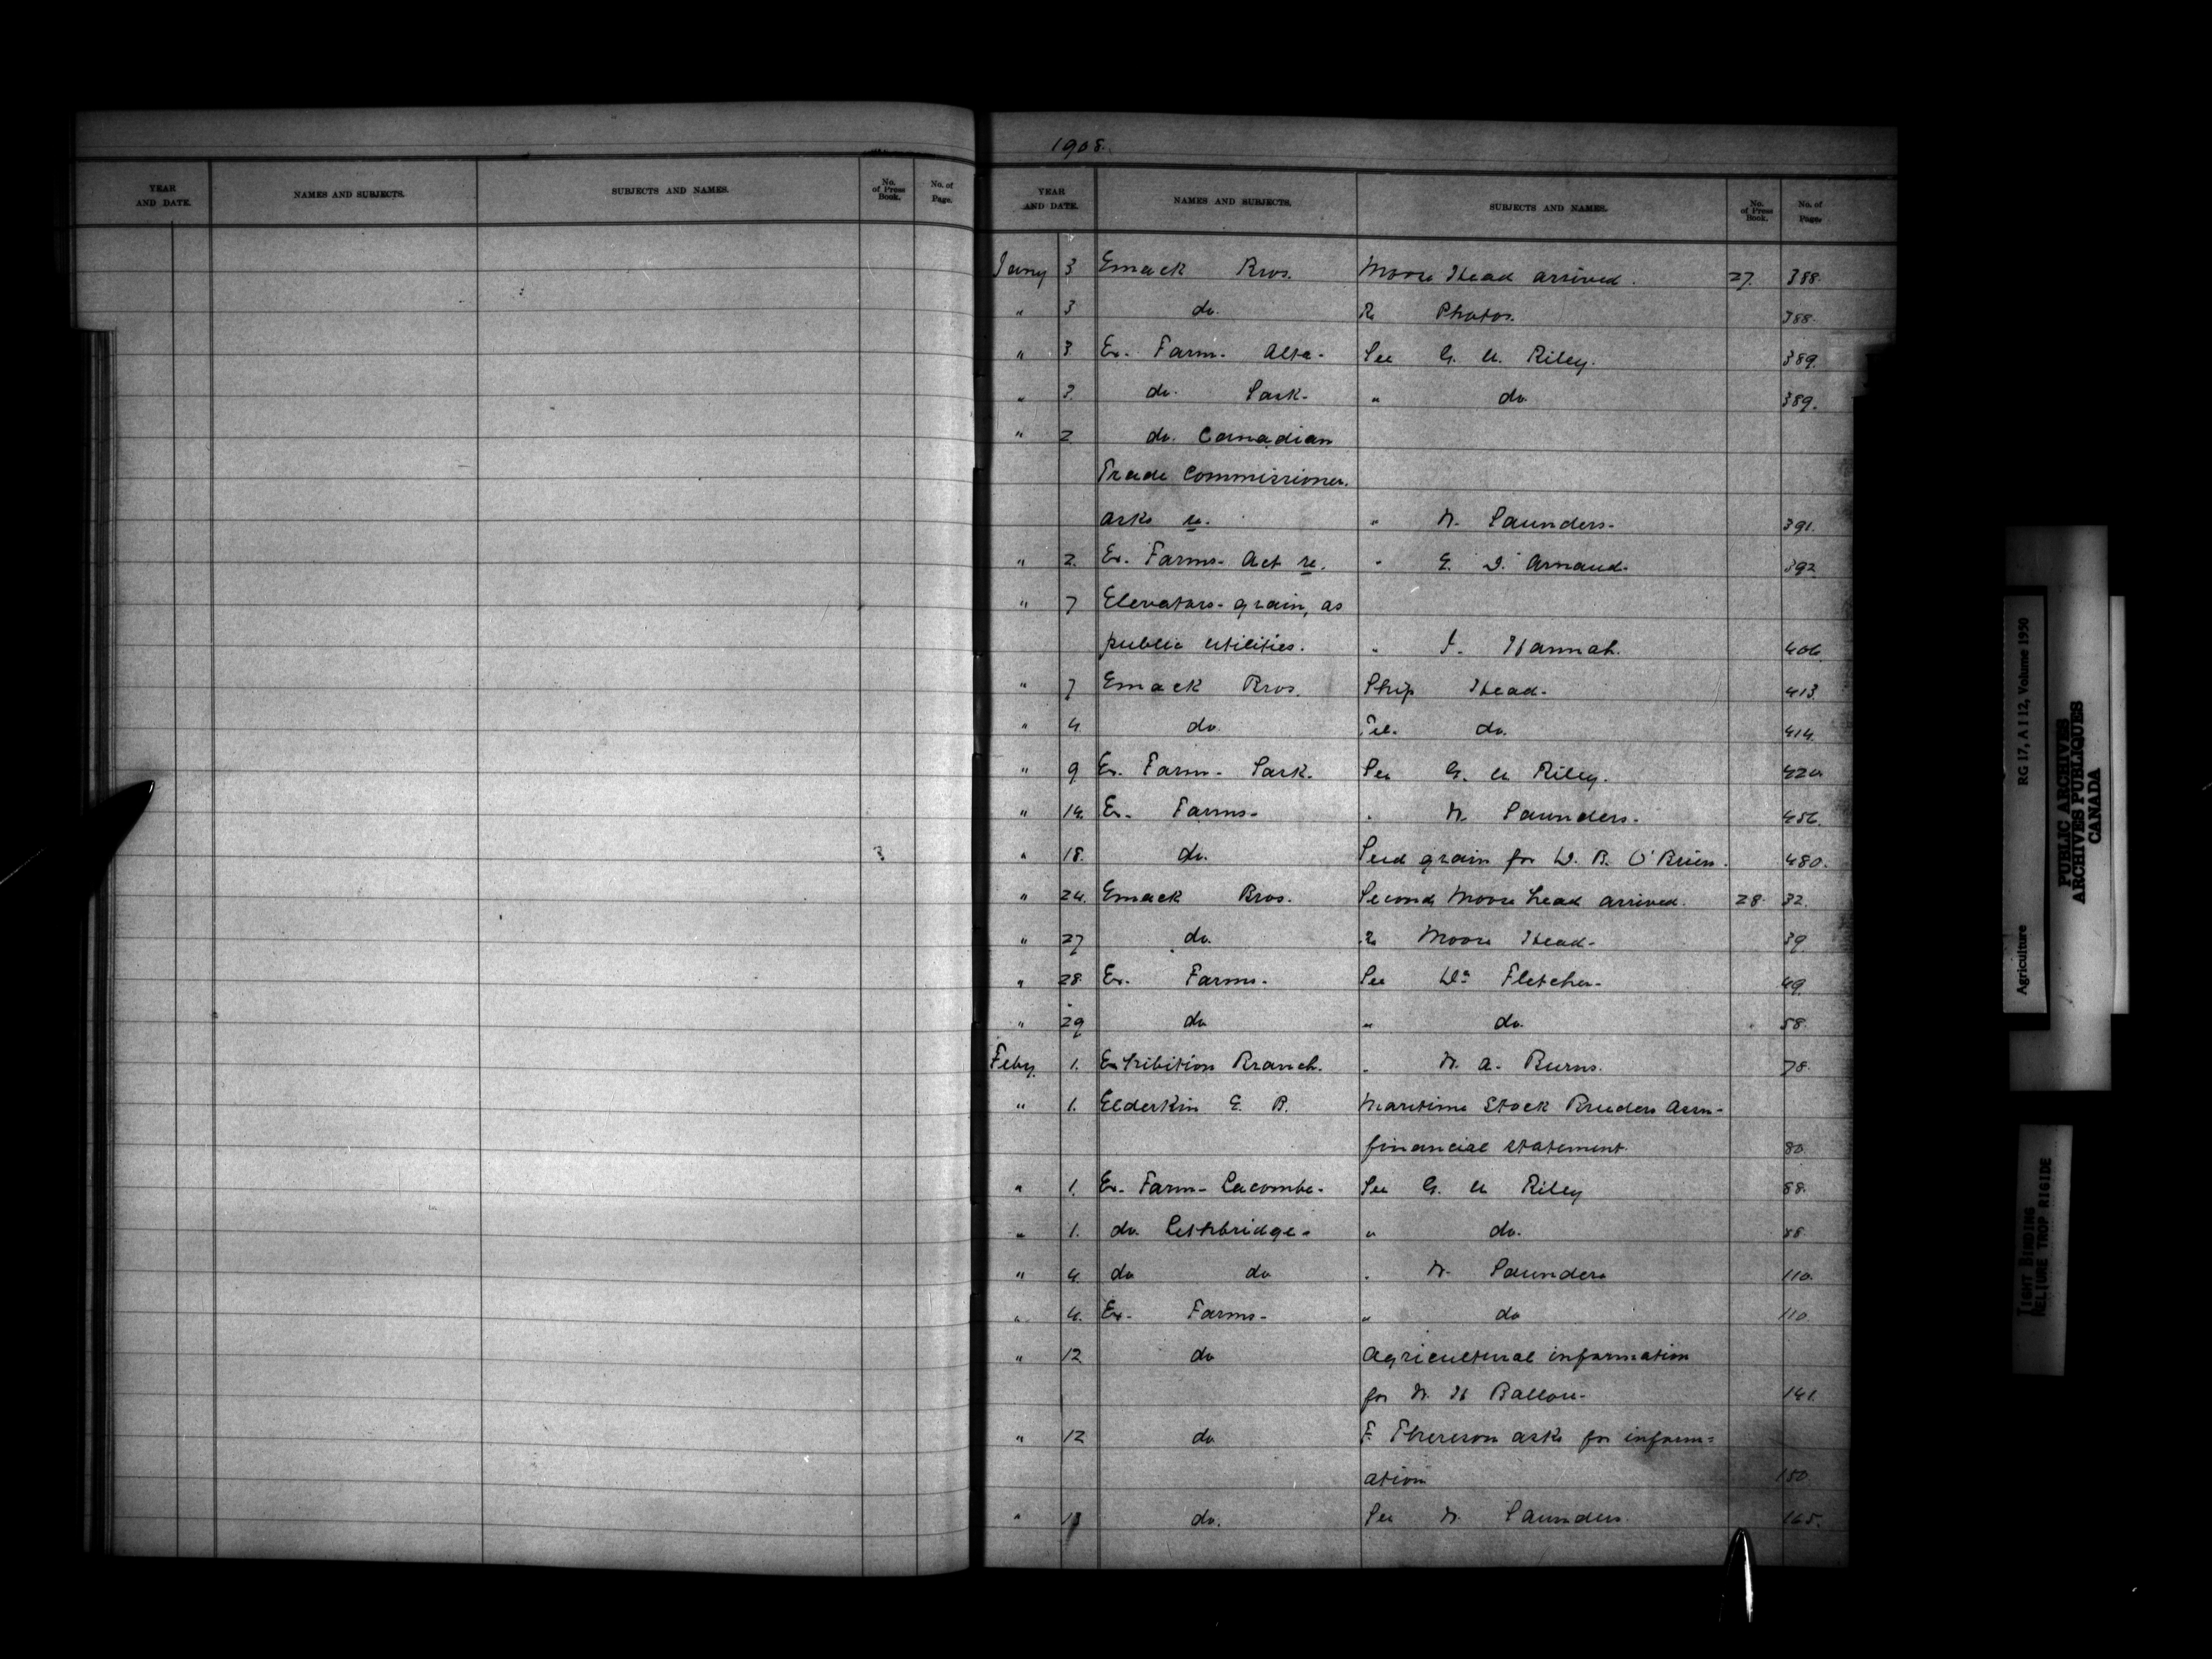 YEAR AND DATE. NAMES AND SUBJECTS. SUBJECTS AND NAMES. No. of Press Book. No. of Page.
3
1908.
YEAR AND DATE. NAMES AND SUBJECTS. SUBJECTS AND NAMES. No. of Press Book. No. of Page.
Jany 3 Emack Bros. Moose Head arrived. 27. 388.
" 3 do. Re Photos. 388.
" 3 Ex. Farm. Alta. See G. U. Riley. 389.
" 3. do. Sask. " do 389.
" 2 do. Canadian
Trade Commissioner.
asks re. " W. Saunders. 391.
" 2. Ex. Farms. Act re. " E. D. Arnaud. 392
" 7 Elevators - grain, as
public utilities. " J. Hannah. 406.
" 7 Emack Bros. Ship Head. 413.
" 4 do. Tel. do. 414.
" 9 Ex. Farm. Sask. See G. U Riley. 420
" 14. Ex. Farms. " W. Saunders. 456.
" 18. do. Seed grain for D. B. O'Brien. 480.
" 24. Emack Bros. Second Moose head arrived. 28. 32.
" 27 do. Re Moose Head. 39
" 28 Ex. Farms. See Dr Fletcher. 49.
" 29 do " do. 58.
Feby. 1. Exhibition Branch. " W. A. Burns. 78.
" 1. Elderkin E. B. Maritime Stock Breeders Assn.
financial statement. 80.
" 1. Ex. Farm - Lacombe. See G. U Riley 88.
" 1. do. Lethbridge. " do. 88
" 4. do do " W. Saunders 110.
" 4. Ex. Farms. " do 110
" 12 do Agricultural information
for W. H Ballou. 141.
" 12 do F. Thereson asks for inform=
ation 150.
" 13 do. See W. Saunders 165.
Agriculture RG 17, A I 12, Volume 1950
PUBLIC ARCHIVES
ARCHIVES PUBLIQUES
CANADA
TIGHT BINDING
RELIURE TROP RIGIDE